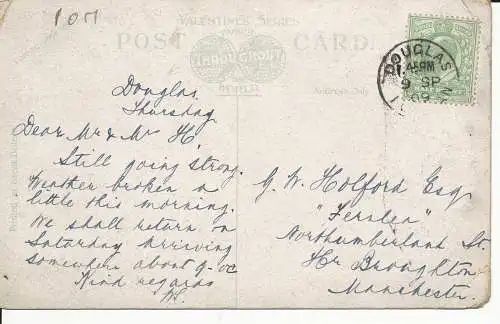 1 0 M
VALENTINE'S SERIES
FAMOUS
POST CARD.
THROUGHOUT
THE WORLD
Address Only.
DOUGLAS
1.45 PM
9 SP
09
Douglas
Thursday
Dear Mr & Mrs H.
Still going strong.
Weather broken a
little this morning.
We shall return on
Saturday arriving
somewhere about 9. oc
Kind regards
G. W. Holford Esq
"Fernlea"
Northumberland St.
Hr Broughton
Manchester.